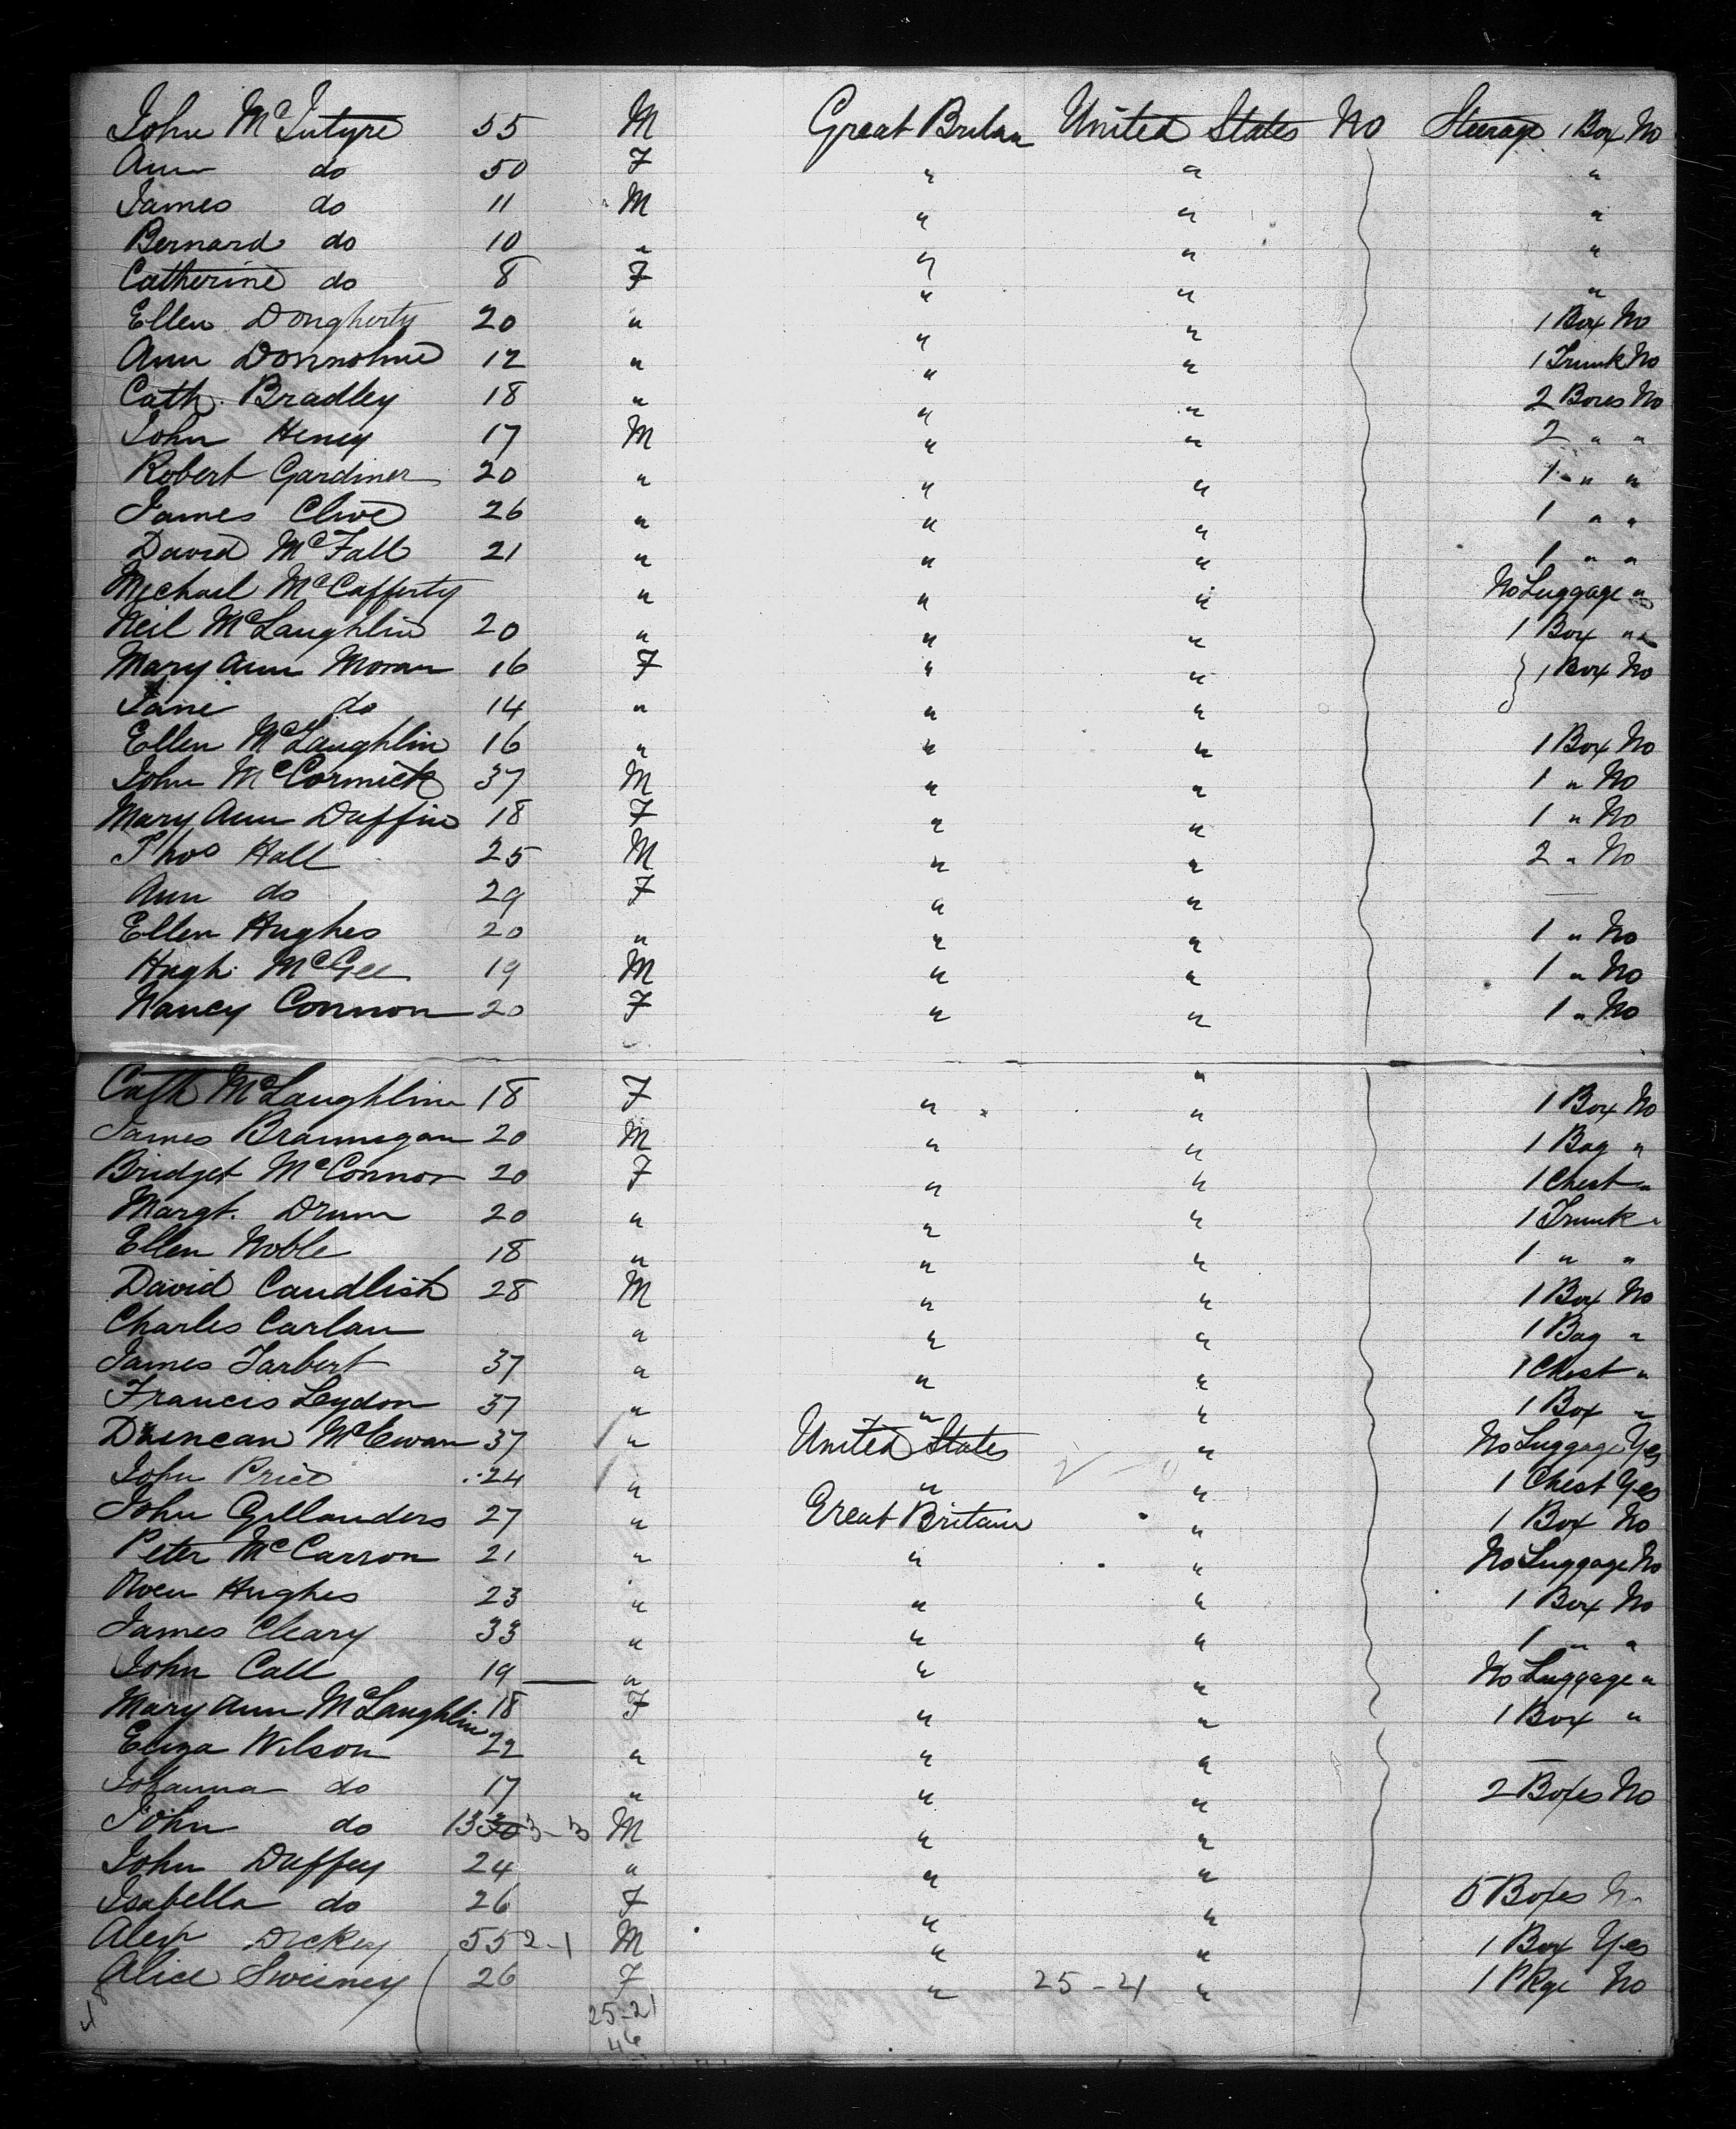 John McIntyre 55 M Great Britain United States No Steerage 1 Box No
Ann do 50 F " " "
James do 11 M " " "
Bernard do 10 " " " "
Catherine do 8 F " " "
Ellen Dongherty 20 " " " 1 Box No
Ann Donnohue 12 " " " 1 Trunk No
Cath. Bradley 18 " " " 2 Boxes No
John Heney 17 M " " 2 " "
Robert Gardiner 20 " " " 1 " "
James Clive 26 " " " 1 " "
David McFall 21 " " " 1 " "
Michael McCafferty " " " No Luggage "
Neil McLaughlin 20 " " " 1 Box "
Mary Ann Moran 16 F " " } 1 Box No
Jane do 14 " " "
Ellen McLaughlin 16 " " " 1 Box No
John McCormick 37 M " " 1 " No
Mary Ann Duffin 18 F " " 1 " No
Thos Hall 25 M " " 2 " No
Ann do 29 F " " —
Ellen Hughes 20 " " " 1 " No
Hugh McGee 19 M " " 1 " No
Nancy Connon 20 F " " 1 " No
"
Cath McLaughlin 18 F " " 1 Box No
James Brannegan 20 M " " 1 Bag "
Bridget McConnor 20 F " " 1 Chest "
Margt. Drum 20 " " " 1 Trunk "
Ellen Noble 18 " " " 1 " "
David Candlish 28 M " " 1 Box No
Charles Carlan " " " 1 Bag "
James Tarbert 37 " " " 1 Chest "
Francis Leydon 37 " " " 1 Box "
Duncan McEwan 37 " United States " No Luggage Yes
John Price 24 " " 2-0 " 1 Chest Yes
John Gillanders 27 " Great Britain " 1 Box No
Peter McCarron 21 " " " No Luggage No
Owen Hughes 23 " " " 1 Box No
James Cleary 33 " " " 1 " "
John Call 19 — " " " No Luggage "
Mary Ann McLaughlin 18 F " " 1 Box "
Eliza Wilson 22 " " " —
Johanna do 17 " " " 2 Boxes No
John do 13 3-3 M " "
John Duffey 24 " " "
Isabella do 26 F " " 5 Boxes No
Alexr Dickey 55 2-1 M " " 1 Box Yes
Alice Sweeney 26 F " 25-21 " 1 Pkge No
25-21
46